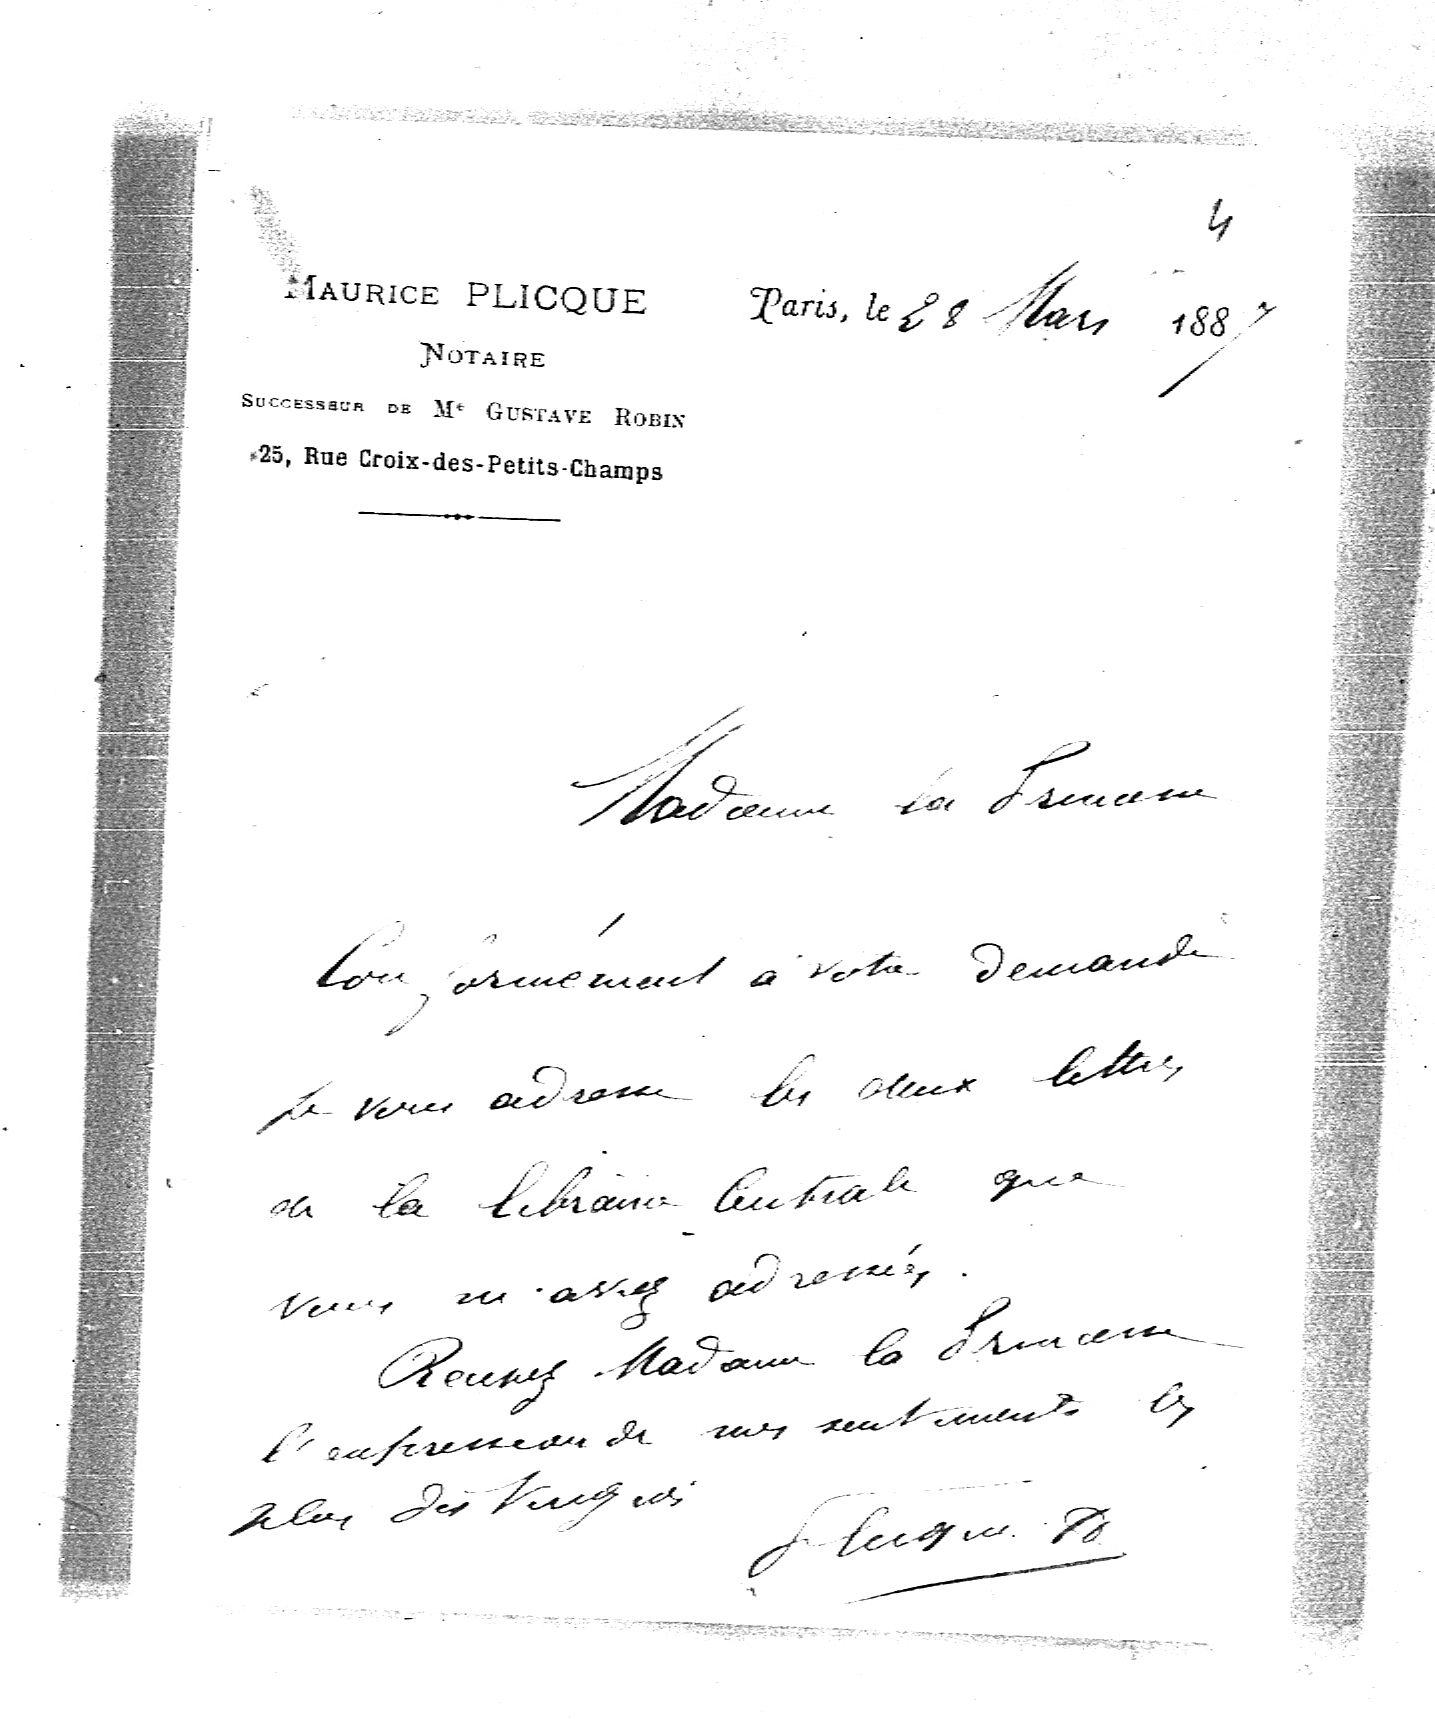 4
MAURICE PLICQUE
NOTAIRE
SUCCESSEUR DE Me GUSTAVE ROBIN
25, Rue Croix-des-Petits-Champs
Paris, le 28 Mars 1887
Madame la Princesse
Conformément à votre demande
je vous adresse les deux lettres
de la librairie Centrale que
vous m'avez adressées.
Recevez Madame la Princesse
l'expression de mes sentiments les
plus distingués
Plicque